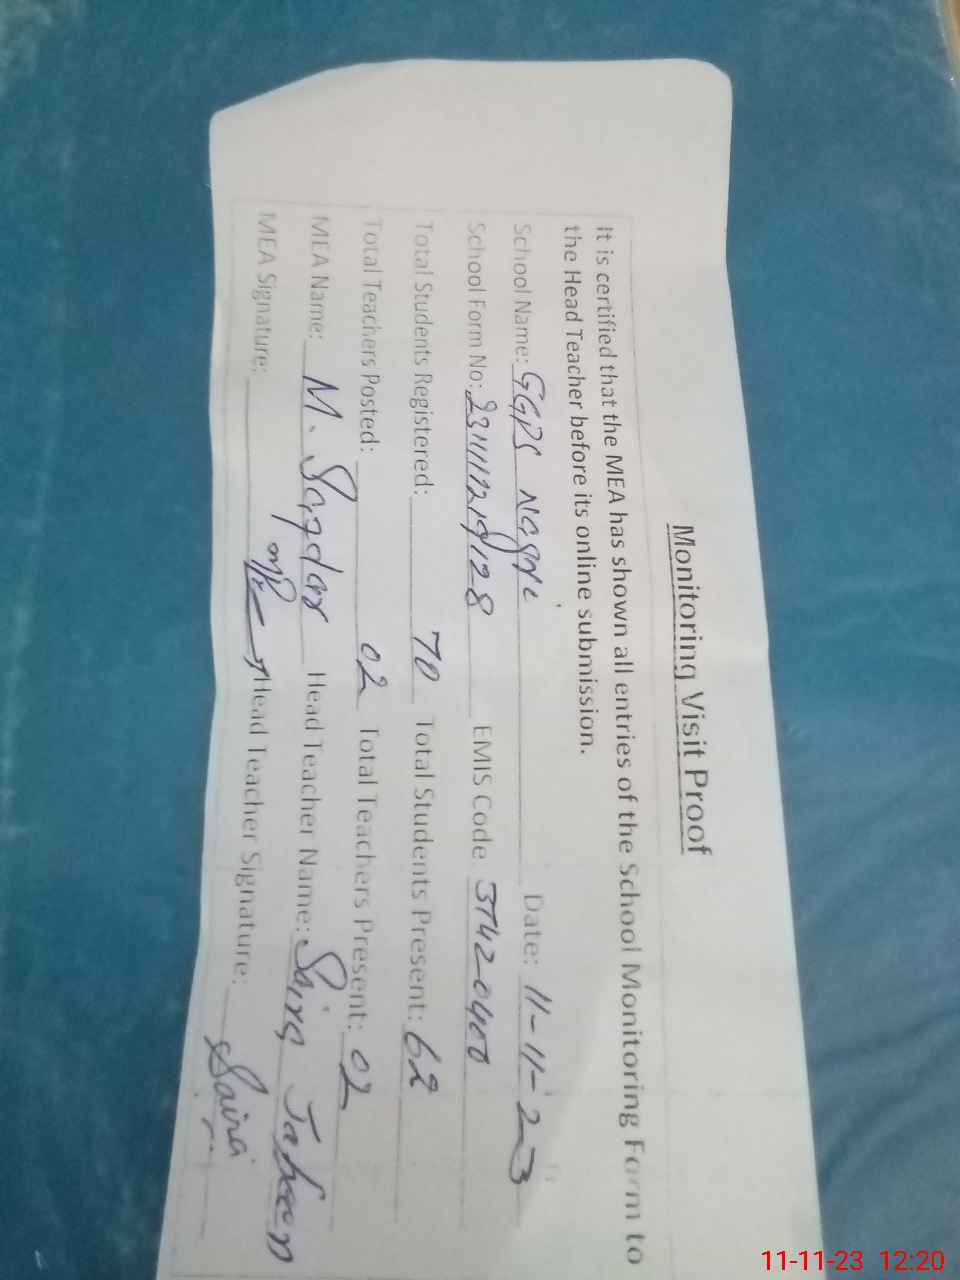 Monitoring Visit Proof
It is certified that the MEA has shown all entries of the School Monitoring Form to
the Head Teacher before its online submission.
School Name: GGPS Date: 11-11-23
School Form No: EMIS Code
Total Students Registered: 70 Total Students Present: 62
Total Teachers Posted: 02 Total Teachers Present: 02
MEA Name: M. Safdar Head Teacher Name: Saira
MEA Signature: Head Teacher Signature: Saira
11-11-23 12:20